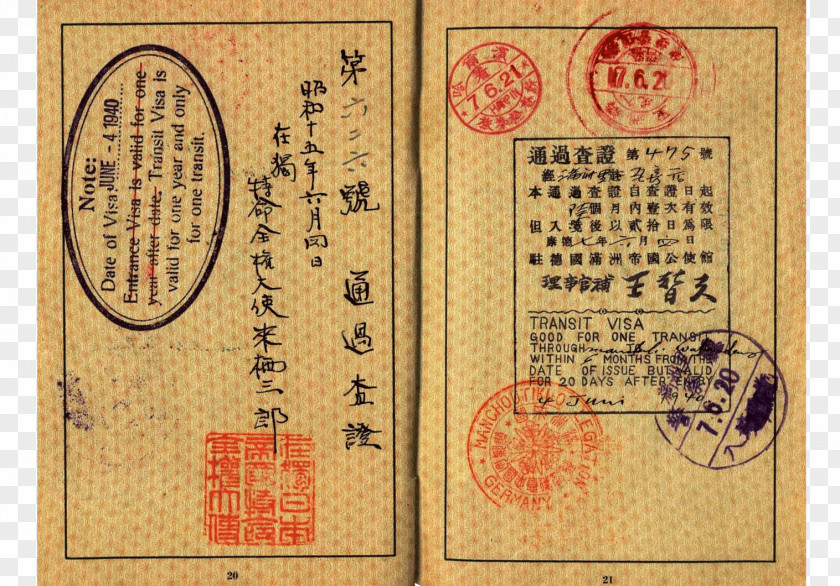 Note:
Date of Visa JUNE -4 1940
Entrance Visa is valid for one
year after date. Transit Visa is
valid for one year and only
for one transit.
第六二六號 通過査證
昭和十五年六月四日
在獨
特命全權大使來栖三郎
在獨日本
20
7.6.21
7.6.20
通過查證 第475號
本通過查證自查證日起
陸個月內壹次有效
但入境後以貳拾日爲限
康德七年六月四日
駐德國滿洲帝國公使館
理事官補 王替夫
TRANSIT VISA
GOOD FOR ONE TRANSIT
THROUGH
WITHIN 6 MONTHS FROM THE
DATE OF ISSUE BUT VALID
FOR 20 DAYS AFTER ENTRY
4 Juni 1940
7.6.20
MANCHOUTIKUO LEGATION
GERMANY
21